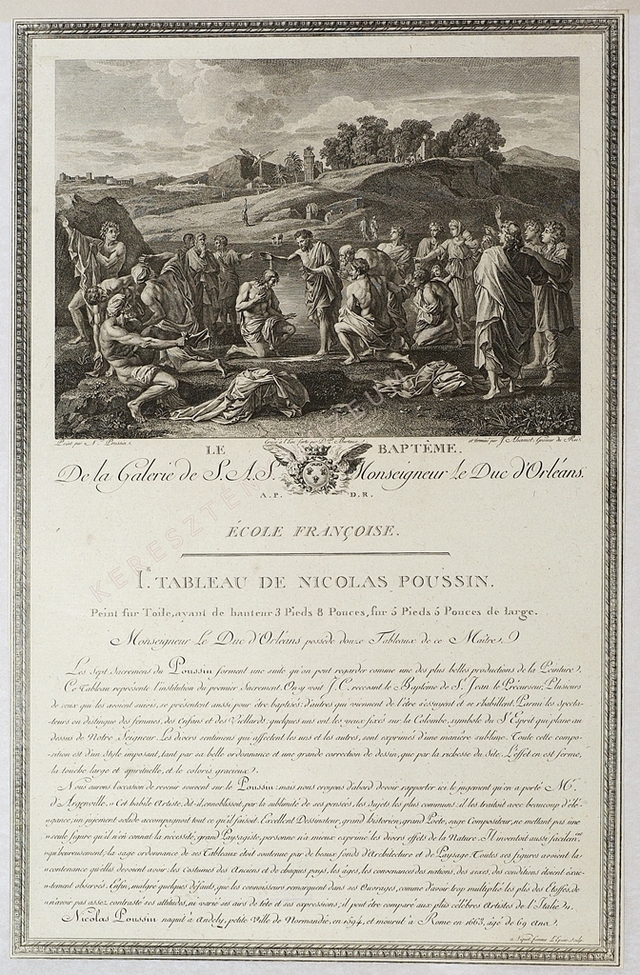 Peint par N. Poussin.
Gravé à l'Eau forte par D.P.
et terminé par J. Graveur du Roi.
LE BAPTÊME.
De la Galerie de S.A.S. Monseigneur Le Duc d'Orléans.
A.P. D.R.
ÉCOLE FRANÇOISE.
I.er TABLEAU DE NICOLAS POUSSIN.
Peint sur Toile, ayant de hauteur 3 Pieds 8 Pouces, sur 5 Pieds 5 Pouces de large.
Monseigneur Le Duc d'Orléans possède douze Tableaux de ce Maître.
Les Sept Sacremens du Poussin forment une suite qu'on peut regarder comme une des plus belles productions de la Peinture.
Ce Tableau représente l'institution du premier Sacrement. On y voit J.C. recevant le Baptême de St. Jean le Précurseur. Plusieurs
de ceux qui les avoient suivis, se présentent aussi pour être baptisés: d'autres qui viennent de l'être s'essuyent et se rhabillent. Parmi les specta-
teurs on distingue des femmes, des Enfans et des Vieillards: quelques uns ont les yeux fixés sur la Colombe, symbole du St. Esprit qui plane au
dessus de Notre Seigneur. Les divers sentimens qui affectent les uns et les autres, sont exprimés d'une manière sublime. Toute cette compo-
sition est d'un Style imposant, tant par sa belle ordonnance et une grande correction de dessin, que par la richesse du Site. L'effet en est ferme,
la touche large et spirituelle, et le coloris gracieux.
Nous aurons l'occasion de revenir souvent sur le Poussin: mais nous croyons d'abord devoir rapporter ici le jugement qu'en a porté Mr.
d'Argenville. « Cet habile Artiste, dit-il, ennoblissoit par la sublimité de ses pensées, les Sujets les plus communs: il les traitoit avec beaucoup d'élé-
« gance; un jugement solide accompagnoit tout ce qu'il faisoit. Excellent Dessinateur, grand historien, grand Poëte, sage Compositeur, ne mettant pas une
« seule figure qu'il n'en connût la nécessité, grand Paysagiste, personne n'a mieux exprimé les divers effets de la Nature. Il inventoit aussi facilemt.
« qu'heureusement; la sage ordonnance de ses Tableaux étoit soutenue par de beaux fonds d'Architecture et de Paysage. Toutes ses figures avoient la
« contenance qu'elles devoient avoir: les Costumes des Anciens et de chaque pays, les âges, les convenances des nations, des sexes, des conditions étoient exac-
« tement observés. Enfin, malgré quelques défauts, que les connoisseurs remarquent dans ses Ouvrages, comme d'avoir trop multiplié les plis des Etoffes, de
« n'avoir pas assez contrasté ses attitudes, ni varié ses airs de tête et ses expressions; il peut être comparé aux plus célèbres Artistes de l'Italie.
Nicolas Poussin naquit à Andely, petite Ville de Normandie, en 1594, et mourut à Rome en 1663, âgé de 69 Ans.